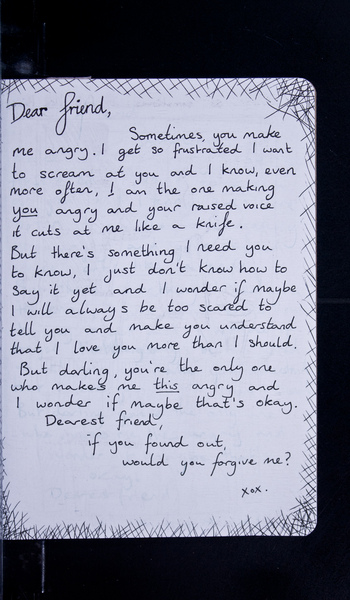 Dear friend,
Sometimes, you make
me angry. I get so frustrated I want
to scream at you and I know, even
more often, I am the one making
you angry and your raised voice
it cuts at me like a knife.
But there's something I need you
to know, I just don't know how to
say it yet and I wonder if maybe
I will always be too scared to
tell you and make you understand
that I love you more than I should.
But darling, you're the only one
who makes me this angry and
I wonder if maybe that's okay.
Dearest friend,
if you found out,
would you forgive me?
xox.